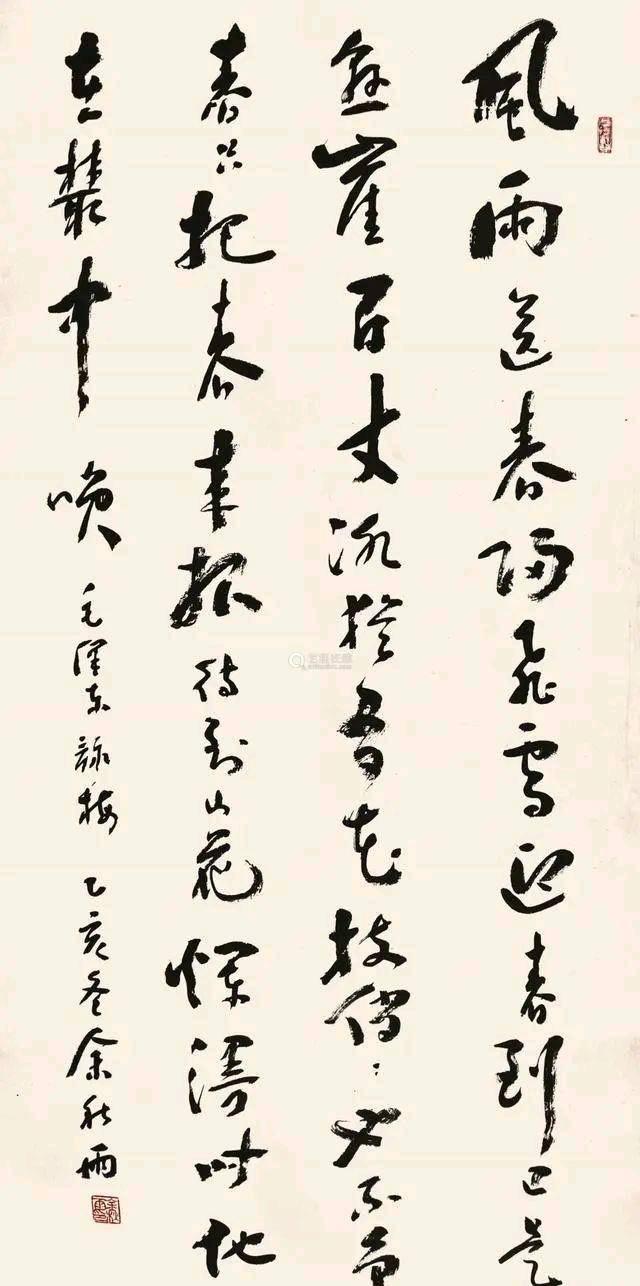 風雨送春歸飛雪迎春到已是
懸崖百丈冰猶有花枝俏〻也不爭
春只把春來報待到山花爛漫時她
在叢中咲 毛澤东詠梅 乙亥冬 余秋雨